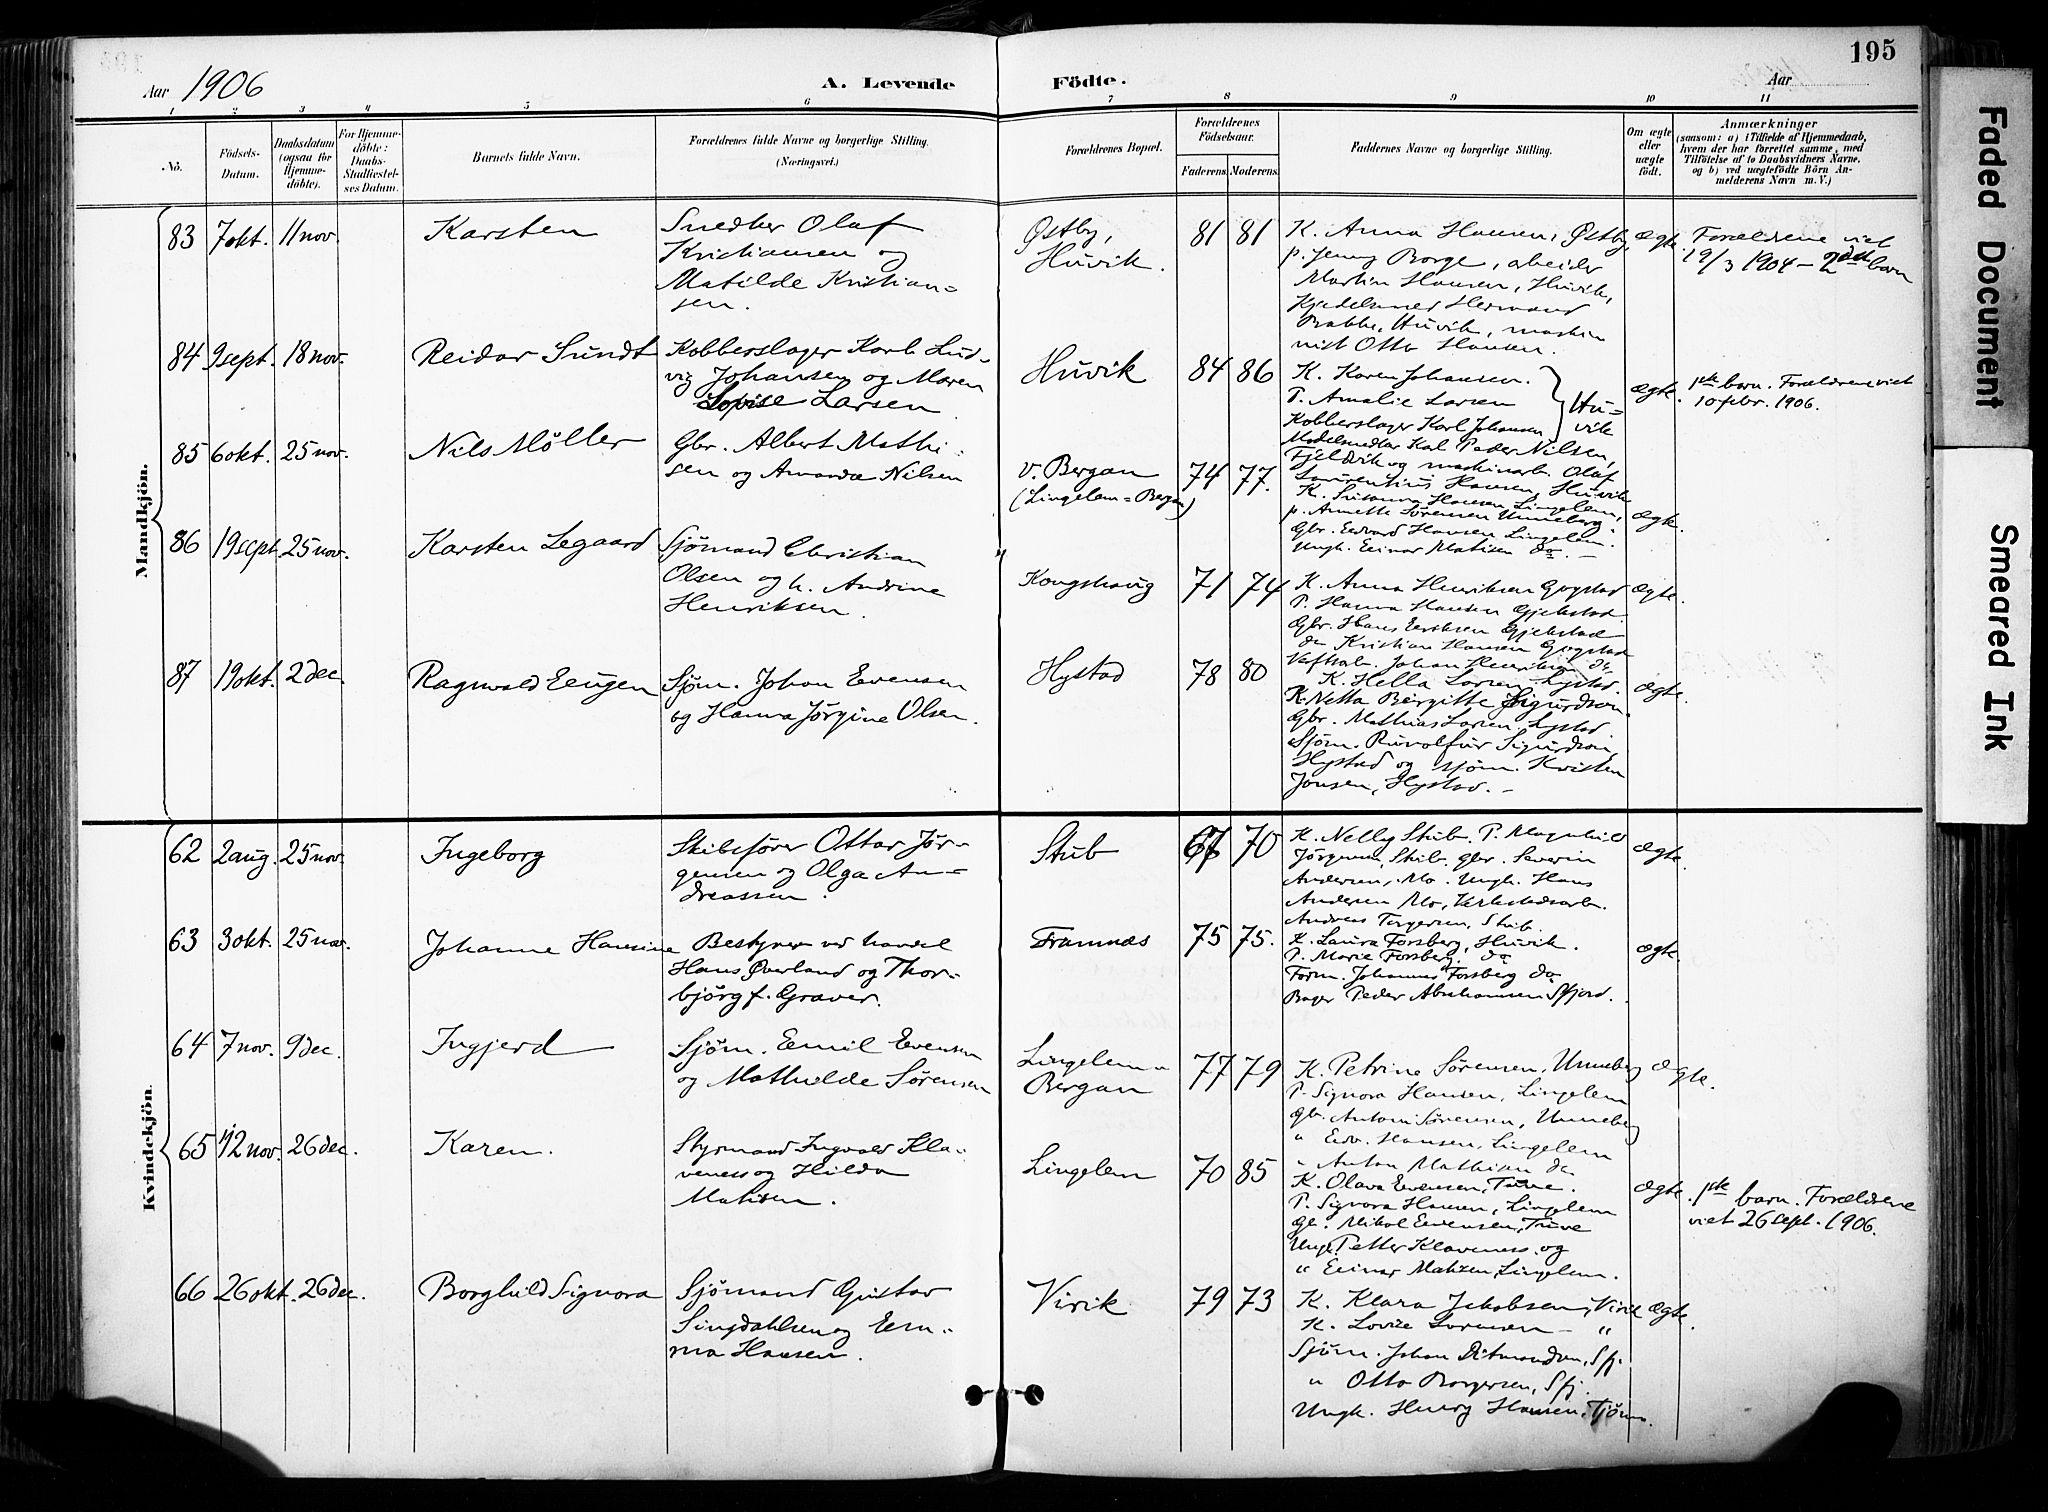 195
Aar 1906
A. Levende Födte.
Aar
1 2 3 4 5 6 7 8 9 10 11
No.
Födsels-Datum.
Daabsdatum (ogsaa for Hjemme-döbte).
For Hjemme-döbte: Daabs-Stadfæstel-ses Datum.
Barnets fulde Navn.
Forældrenes fulde Navne og borgerlige Stilling. (Næringsvei.)
Forældrenes Bopæl.
Forældrenes Födselsaar.
Faderens. Moderens.
Faddernes Navne og borgerlige Stilling.
Om ægte eller uægte födt.
Anmærkninger
(saasom: a) i Tilfælde af Hjemmedaab, hvem der har forrettet samme, med Tilföielse af to Daabsvidners Navne, og b) ved uægtefödte Börn An-melderens Navn m. V.)
Mandkjön.
83 7 okt. 11 nov. Karsten
Snedker Olaf
Kristiansen og
Matilde Kristian=
sen.
Østby,
Huvik.
81 81
K. Anna Hansen, Østby,
p. Jenny Borge, arbeider
Martin Hansen, Huvik,
Kjedelsmed Hermand
Babbe, Huvik, maskin
nist Otto Hansen.
ægte.
Forældrene viet
19/3 1904 - 2det barn
84 9 sept. 18 nov. Reidar Sundt
Kobberslager Karl Lud=
vig Johansen og Maren
Lovise Larsen.
Huvik
84 86
K. Karen Johansen.
P. Amalie Larsen
Kobberslager Karl Johansen
Hu=
vik
Modelsnedker Karl Peder Nilsen,
Fjeldvik og maskinarb. Olaf
Laurentius Hansen, Huvik
ægte.
1ste barn. Forældrene viet
10 febr. 1906.
85 6 okt. 25 nov. Nils Möller
Gbr. Albert Mathi=
sen og Amanda Nilsen
v. Bergan
(Lingelem=Bergan)
74 77.
K. Susanna Hansen Lingelem,
p. Annette Sørensen Unneberg.
Gbr. Edvard Hansen Lingelem.
Ungk. Einar Matisen do. -
ægte.
86 19 sept. 25 nov. Karsten Legaard
Sjömand Christian
Olsen og h. Andrine
Henriksen.
Kongshaug
71 74
K. Anna Henriksen Gogstad
P. Hanna Hansen Gjekstad.
Gbr. Hans Eriksen Gjekstad
do Kristian Hansen Gogstad
Johan Henriksen do
ægte.
87 19 okt. 2 dec. Ragnvald Eugen
Sjøm. Johan Evensen
og Hanna Jørgine Olsen.
Hystad
78 80
K. Hella Larsen Hystad.
K. Netta Birgitte Sigurdson
Gbr. Mathias Larsen Hystad.
Sjøm. Runolfur Sigurdson,
Hystad og sjøm. Kristen
Jonsen, Hystad. -
ægte.
Kvindekjön.
62 2 aug. 25 nov. Ingeborg
Skibsfører Ottar Jör=
gensen og Olga An=
dreassen.
Stub
67 70
K. Nelly Stub. P. Magnhild
Jörgensen, Stub. gbr. Severin
Andersen, Mo. Ungk. Hans
Andersen Mo, Verkstedsarb.
Andreas Torgersen, Stub.
ægte.
63 3 okt. 25 nov. Johanne Hansine
Bestyrer ved handel
Hans Øverland og Thor=
björg f. Graver.
Framnæs
75 75.
K. Laura Forsberg, Huvik.
P. Marie Forsberg, do
Form. Johannes Forsberg do
Bager Peder Abrahamsen Sfjord.
ægte.
64 7 nov. 9 dec. Ingjerd
Sjøm. Emil Evensen
og Mathilde Sørensen
Lingelem=
Bergan
77 79
K. Petrine Sørensen, Unneberg
P. Signora Hansen, Lingelem
gbr. Anton Sørensen, Unneberg
" Edv. Hansen, Lingelem
" Anton Mathisen do
ægte.
65 12 nov. 26 dec. Karen.
Styrmand Ingvald Kla=
veness og Hilda
Matisen.
Lingelem
70 85
K. Olava Evensen, Tuve.
P. Signora Hansen, Lingelem
gb. Mikal Evensen, Tuve
Ungk. Petter Klaveness og
" Einar Matisen, Lingelem.
ægte.
1ste barn. Forældrene
viet 26 sept. 1906.
66 26 okt. 26 dec. Borghild Signora
Sjömand Gustav
Singdahlsen og Em=
ma Hansen.
Virik
79 73
K. Klara Jakobsen, Virik
K. Lovise Larsen - "
Sjøm. Johan Ditmandsen, Sfj.
" Otto Borgersen, Sfj.
Ungk. Henry Hansen, Tjømø.
ægte.
Faded Document
Smeared Ink